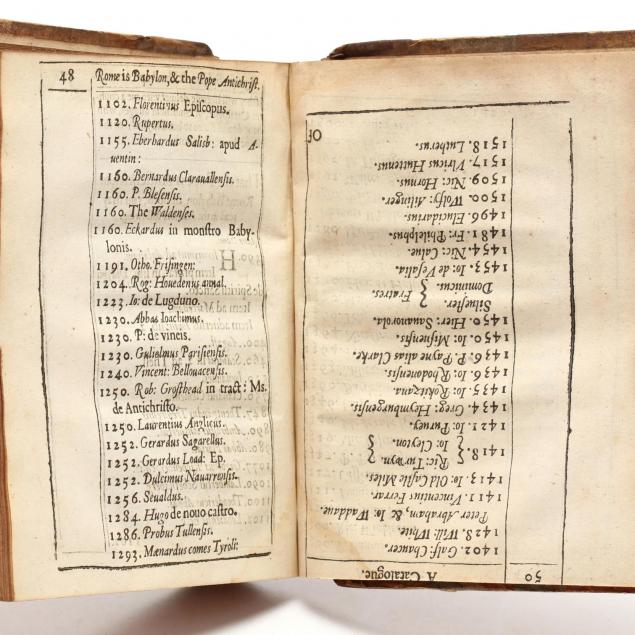 48 Rome is Babylon, & the Pope Antichrist.
1102. Florentinus Episcopus.
1120. Rupertus.
1155. Eberhardus Salisb: apud A-
uentin:
1160. Bernardus Clarauallensis.
1160. P. Blesensis.
1160. The Waldenses.
1160. Eckardus in monstro Baby-
lonis.
1191. Otho. Frisingen:
1204. Rog: Houedenus annal.
1223. Io: de Lugduno.
1230. Abbas Ioachimus.
1230. P: de vineis.
1230. Gulielmus Parisiensis.
1240. Vincent: Bellouacensis.
1250. Rob: Grosthead in tract: Ms.
de Antichristo.
1250. Laurentius Anglicus.
1252. Gerardus Sagarellus.
1252. Gerardus Load: Ep.
1252. Dulcimus Nauarrensis.
1256. Seualdus.
1284. Hugo de nouo castro.
1286. Probus Tullensis.
1293. Mænardus comes Tyroli:
50 A Catalogue.
1402. Galf: Chaucer.
1428. Will: White.
Peter Abraham, & Io: Waddune.
1411. Vincentius Ferrar
1413. Io: Old Castle Miles.
1418. { Ric: Turwyn. }
{ Io: Cleyton. }
1421. Io: Purney.
1434. Greg: Heymburgensis.
1435. Io: Rokitzana.
1436. Io: Rhodonensis.
1436. P. Payne alias Clarke.
1450. Io. Misnensis.
1450. Hier: Sauanorola.
Siluester } Fratres.
Dominicus.
1453. Io: de Vesalia.
1454. Nic: Calue.
1481. Fr: Philelphus.
1496. Elucidarius.
1500. Wolfg: Ailinger.
1509. Nic: Hornus.
1517. Vlricus Huttenus.
1518. Lutherus.
Of